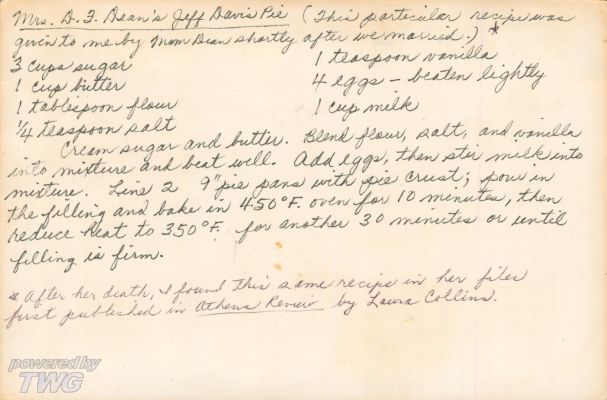 Mrs. D. F. Dean's Jeff Davis Pie (This particular recipe was
given to me by Mom Dean shortly after we married.) *
3 cups sugar 1 teaspoon vanilla
1 cup butter 4 eggs – beaten lightly
1 tablespoon flour 1 cup milk
1/4 teaspoon salt
Cream sugar and butter. Blend flour, salt, and vanilla
into mixture and beat well. Add eggs, then stir milk into
mixture. Line 2 9" pie pans with pie crust; pour in
the filling and bake in 450°F. oven for 10 minutes, then
reduce heat to 350°F. for another 30 minutes or until
filling is firm.
* After her death, I found this same recipe in her files
first published in Athens Review by Laura Collins.
powered by
TWG